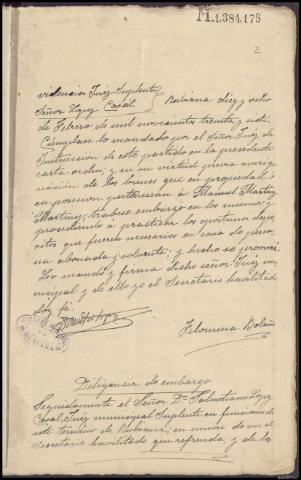 M.1.384.178
2
Providencia Juez Suplente
Señor Lopez Casal Rubiana diez y ocho
de Febrero de mil novecientos treinta y siete
Cúmplase lo mandado por el Señor Juez de
Instrucción de este partido en la precedente
carta orden, y en su virtud previa averig
uación de los bienes que en propiedad ó
en posesion pertenezcan á Manuel Martinez
Martinez, trabese embargo en los mismos y
procediendo á practicar los oportunos depo
sitos que fueren necesarios en casa de perso
na abonada y solvente; y hecho se proveerá
Lo mandó y firma dicho señor Juez mu
nicipal y de ello yo el Secretario habilitado
doy fé.
Filomena Bolaño
Diligencia de embargo
Seguidamente el Señor Dn.
Casal, Juez municipal Suplente en funciones de
este termino de Rubiana, en union de mi el
Secretario habilitado que refrenda, y de los